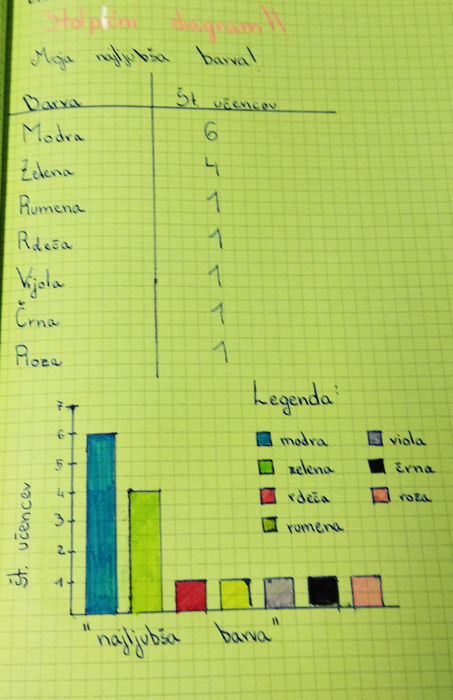 Stolpični diagram!!
Moja najljubša barva!
Barva Št. učencev
Modra 6
Zelena 4
Rumena 1
Rdeča 1
Vijola 1
Črna 1
Roza 1
Legenda:
modra viola
zelena črna
rdeča roza
rumena
7
6
5
4
3
2
1
Št. učencev
"najljubša barva"